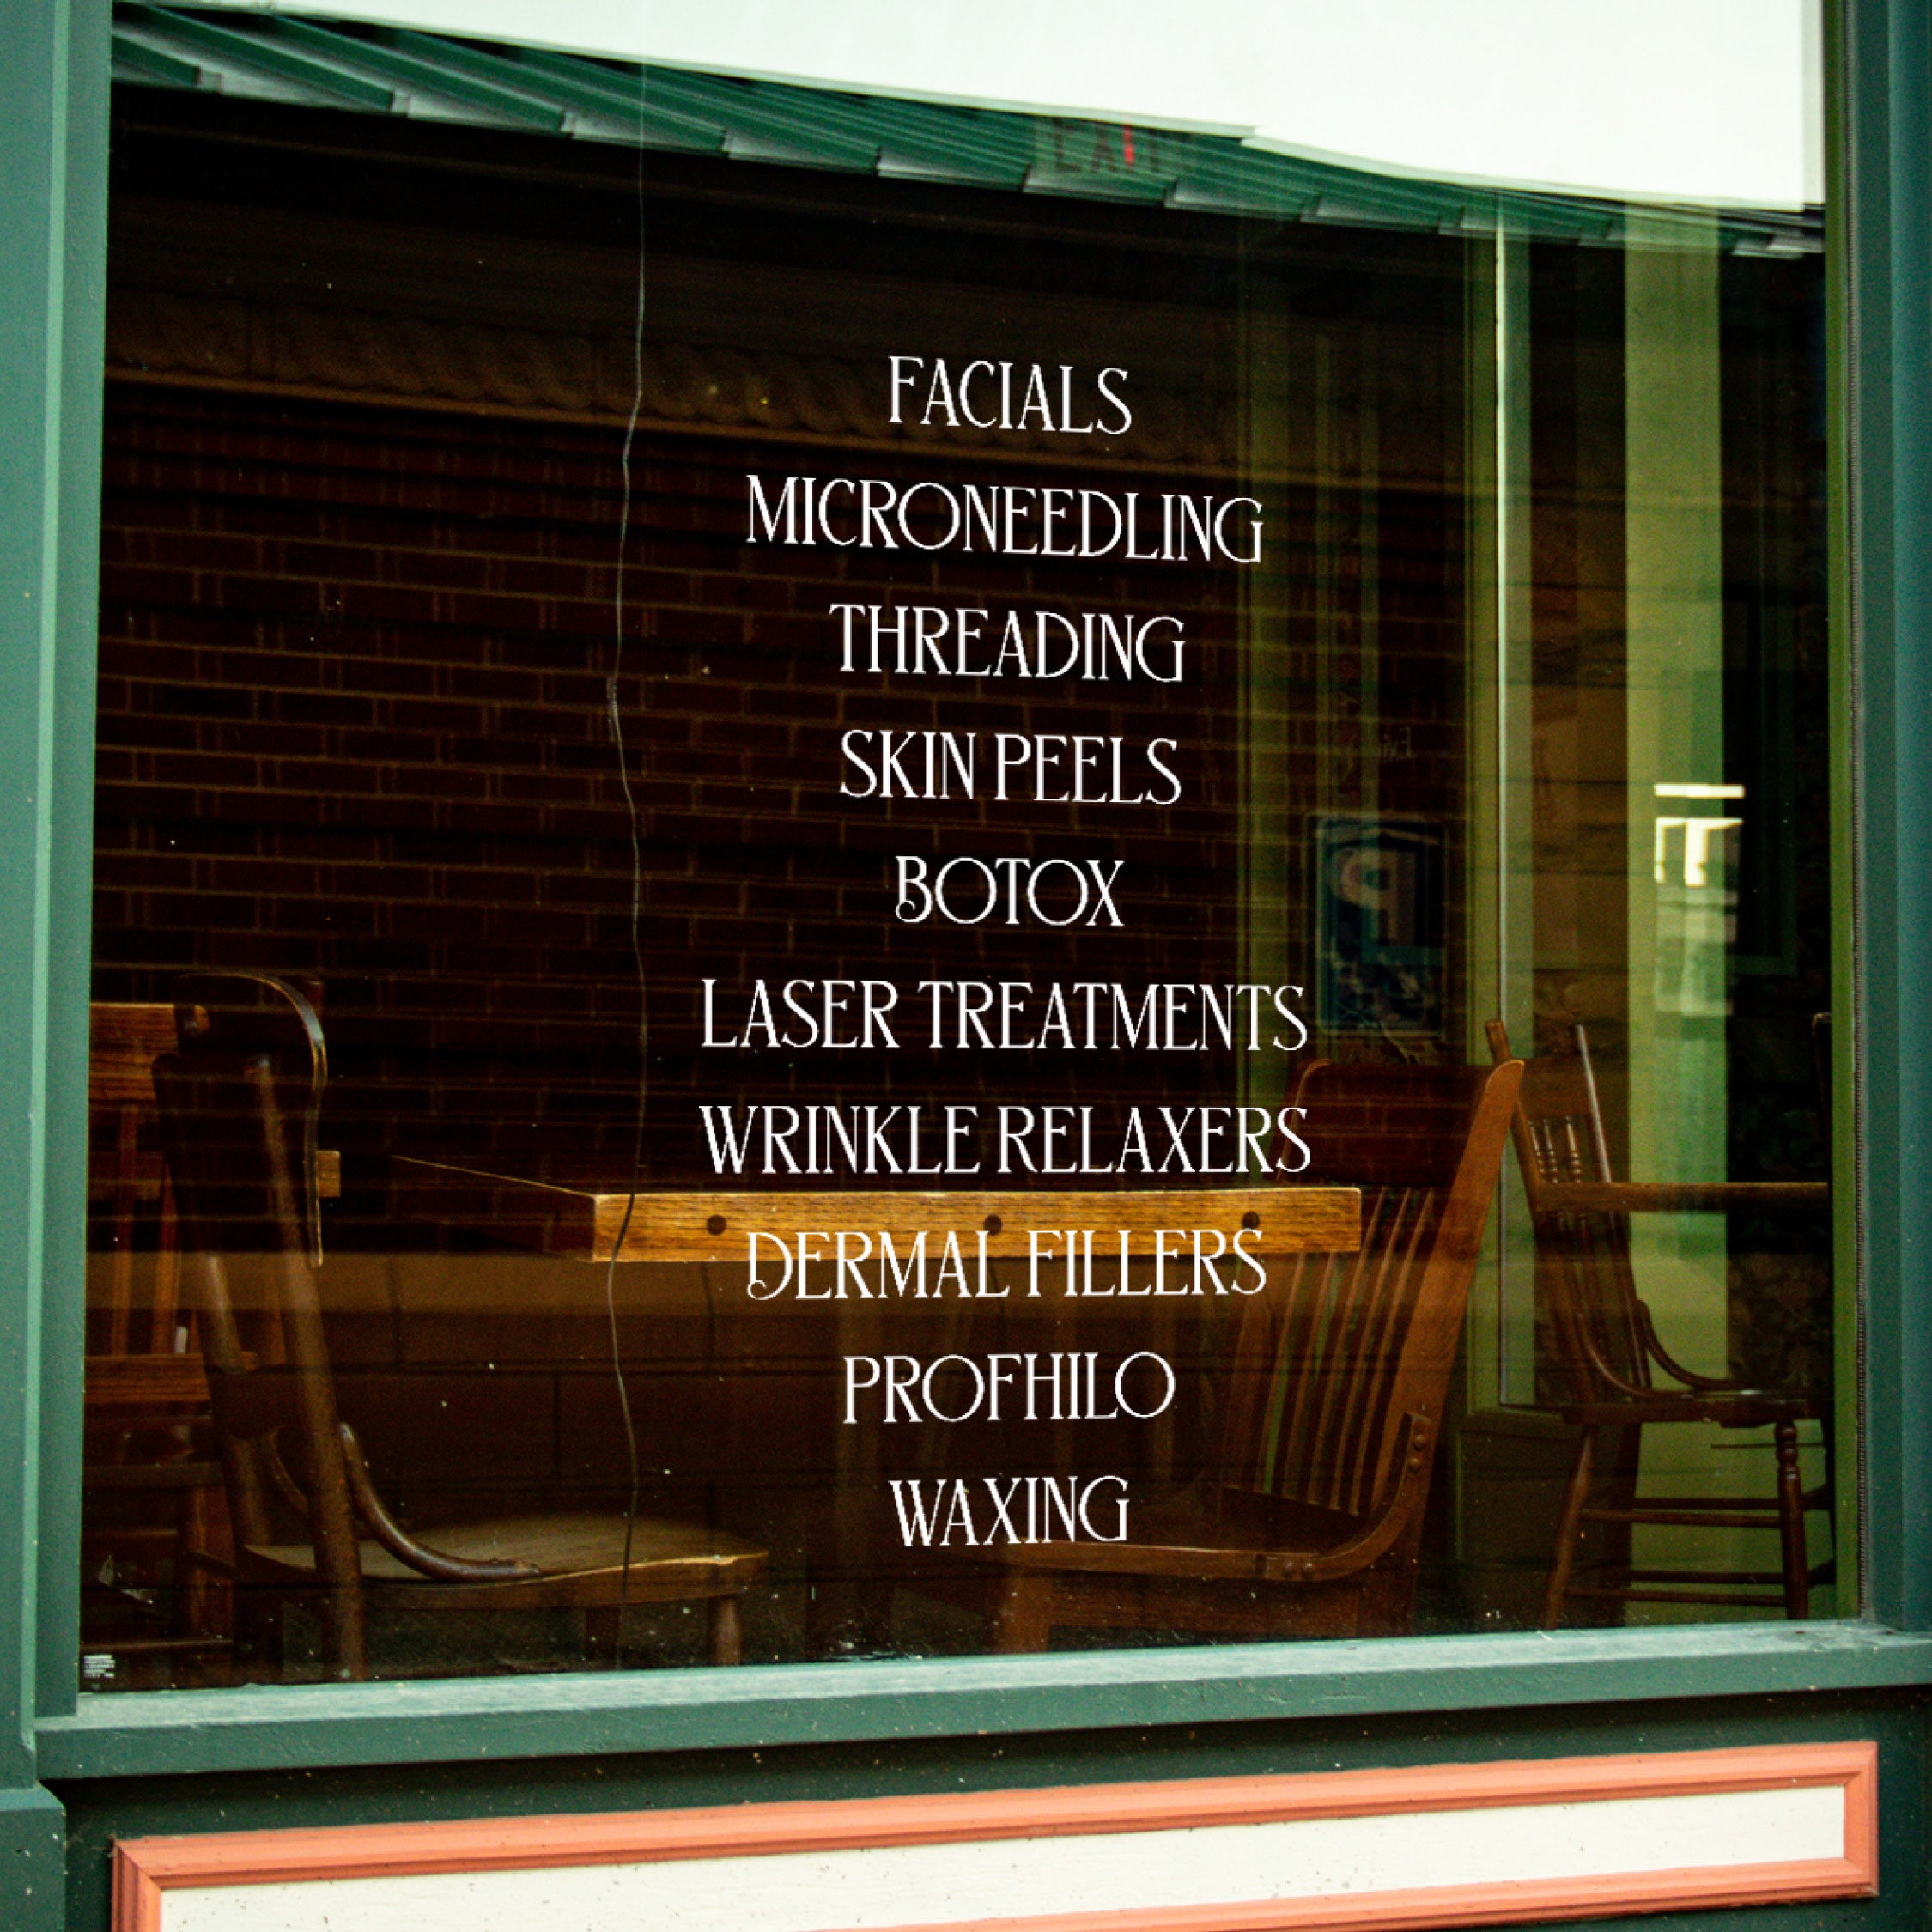 EXIT
FACIALS
MICRONEEDLING
THREADING
SKIN PEELS
BOTOX
LASER TREATMENTS
WRINKLE RELAXERS
DERMAL FILLERS
PROFHILO
WAXING